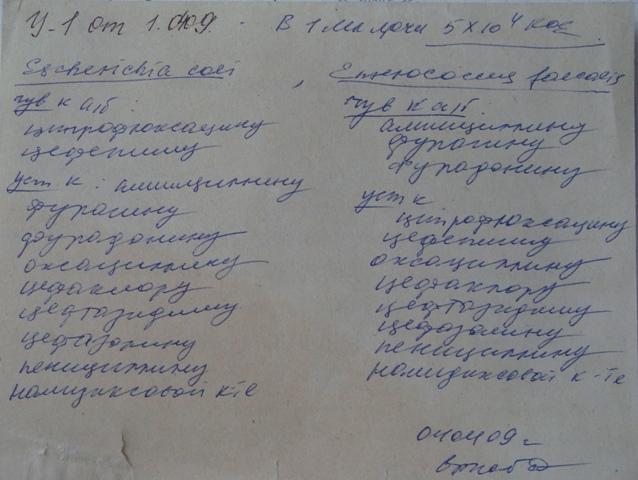 У-1 от 1. 09. - В 1 мл мочи 5 х 10⁴ КОЕ
Escherichia coli , Enterococcus faecalis
чув к а/б :
ципрофлоксацину
цефепиму
уст. к : ампициллину
фурагину
фурадонину
оксациллину
цефаклору
цефтазидиму
цефазолину
пенициллину
налидиксовой к-те
чув к а/б.
ампициллину
фурагину
фурадонину
уст к
ципрофлоксацину
цефепиму
оксациллину
цефаклору
цефтазидиму
цефазолину
пенициллину
налидиксовой к-те
040409 г